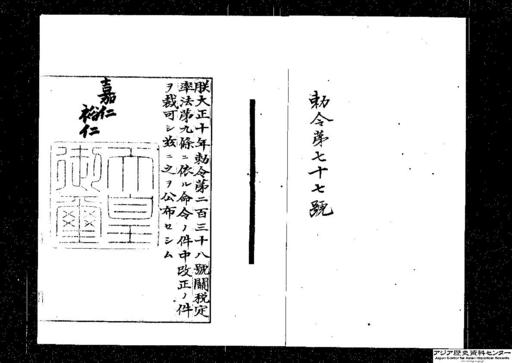 勅令第七十七號
朕大正十年勅令第二百三十八號關税定
率法第九條ニ依ル命令ノ件中改正ノ件
ヲ裁可シ茲ニ之ヲ公布セシム
嘉仁
裕仁
天皇
御璽
アジア歴史資料センター
Japan Center for Asian Historical Records